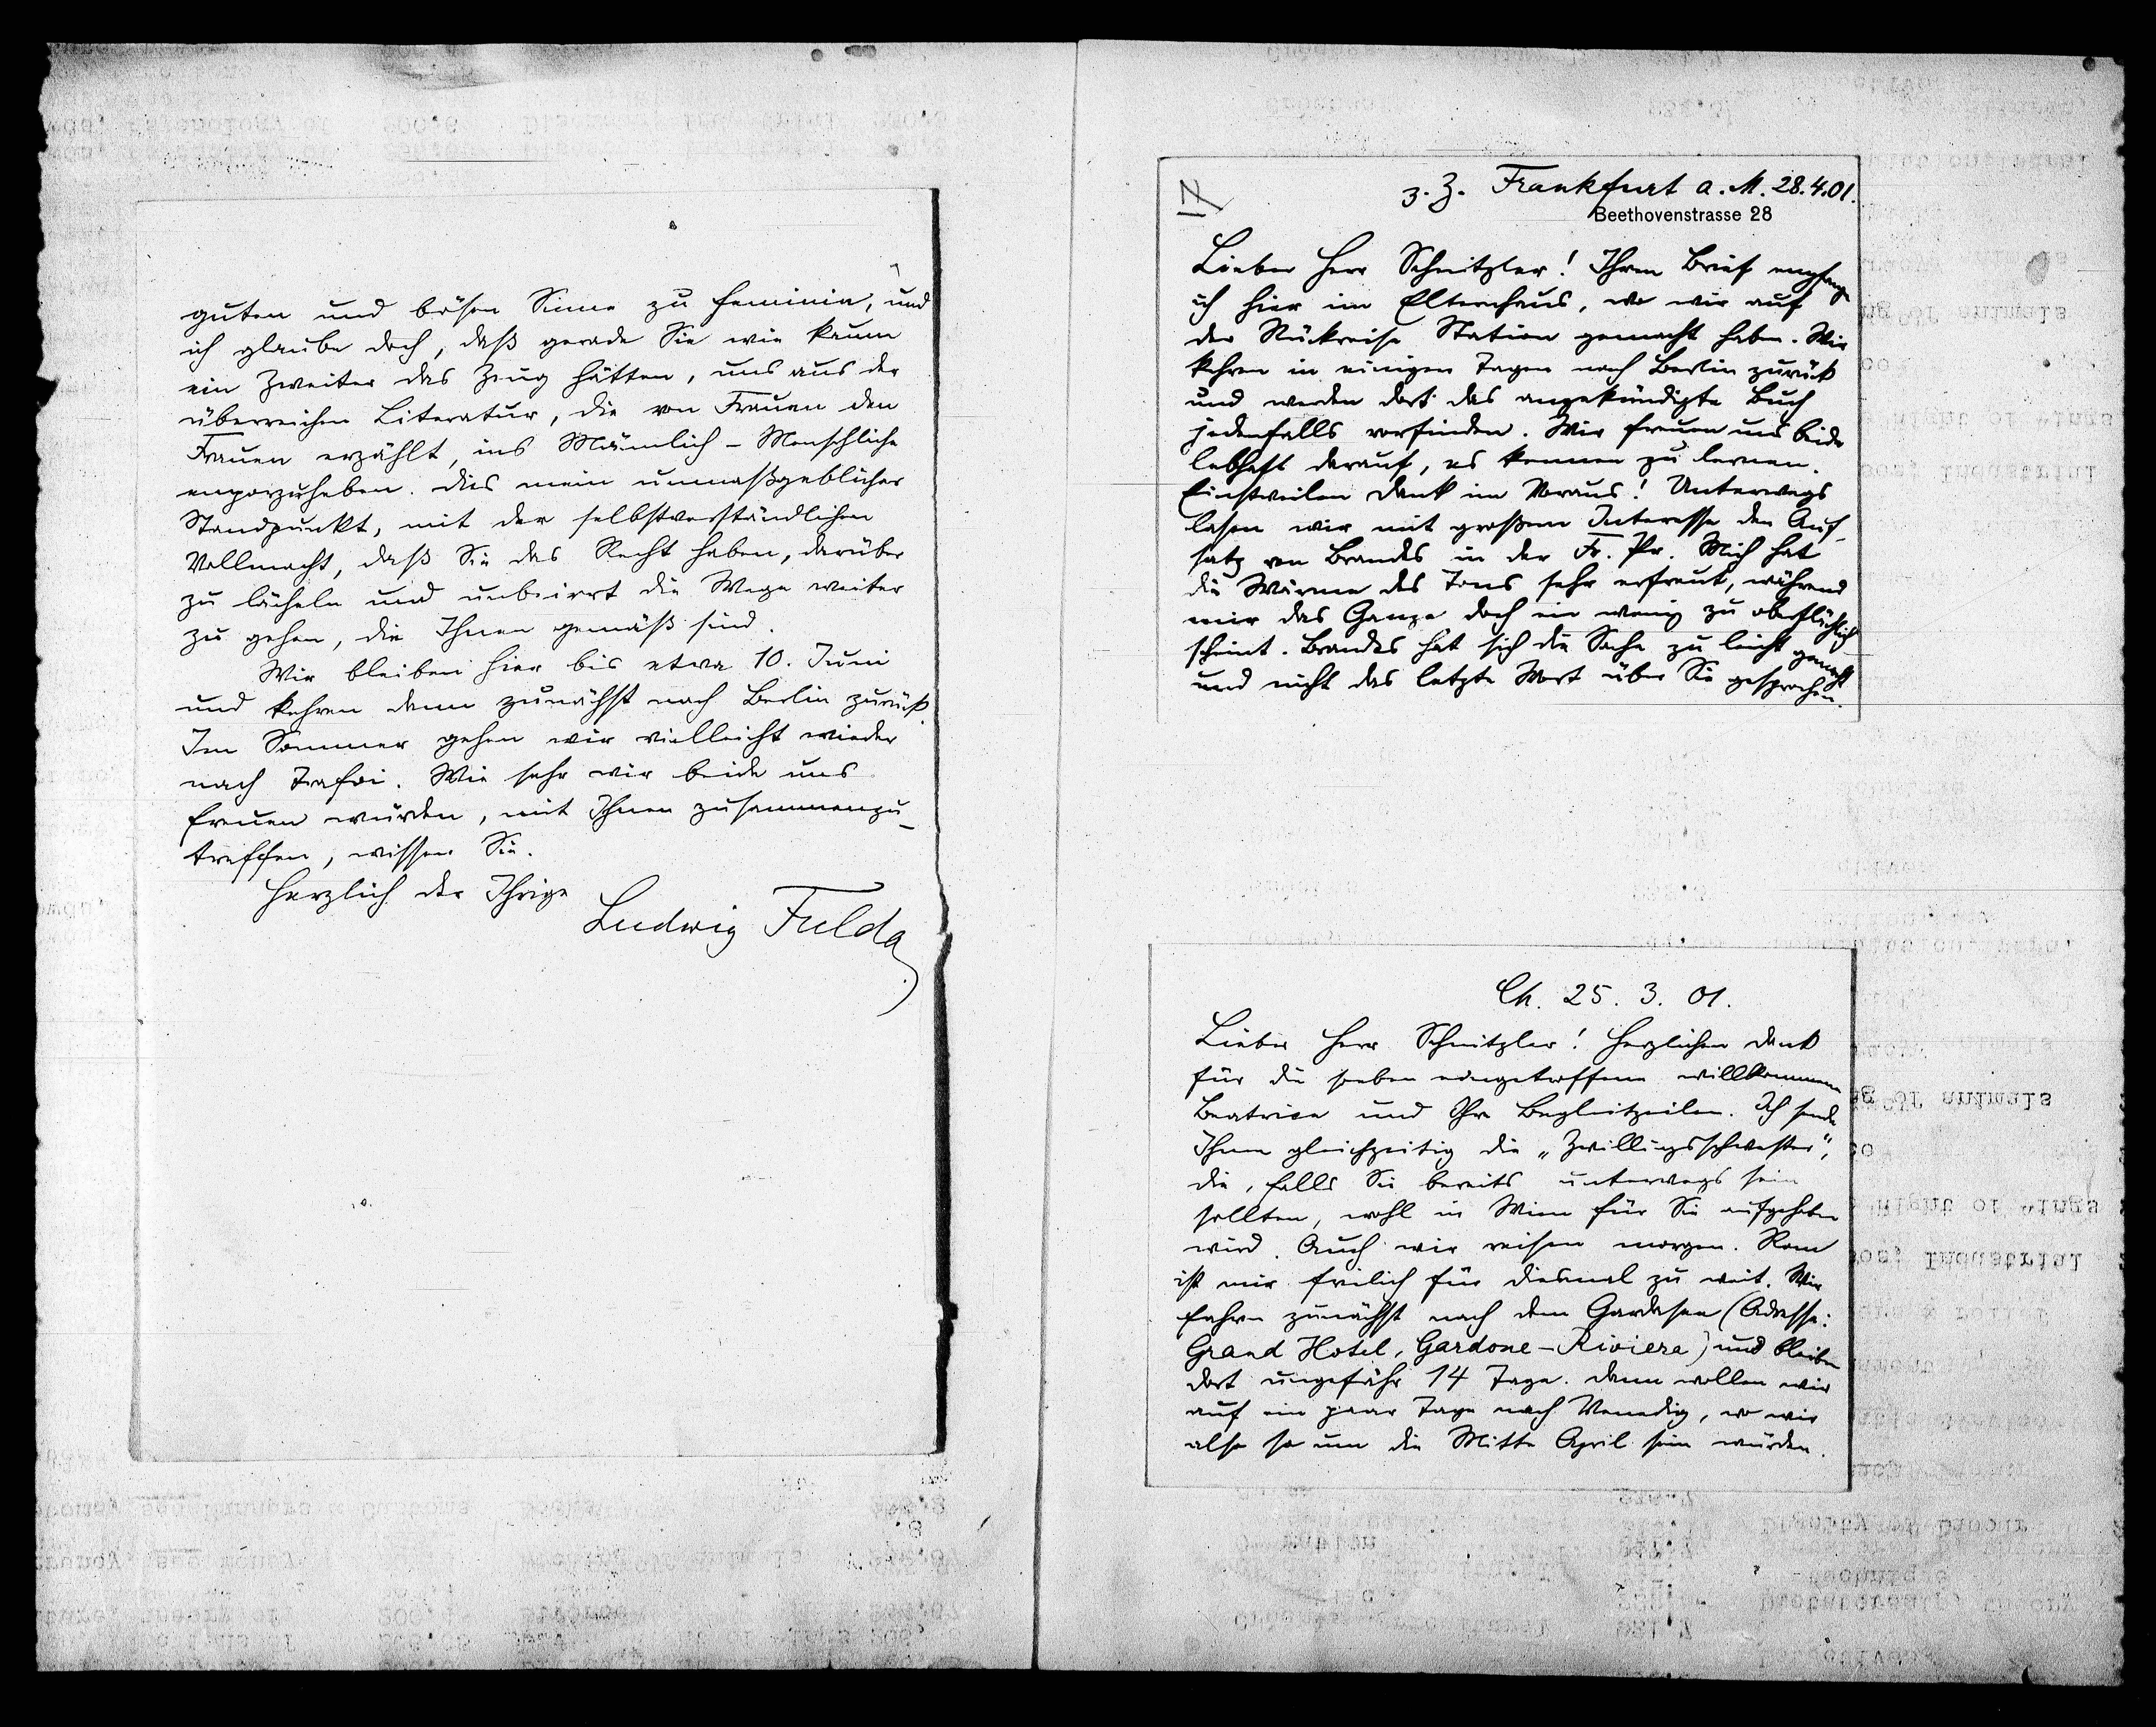 guten und bösen Sinne zu feminin, und
ich glaube doch, daß gerade Sie wie kaum
ein Zweiter das Zeug hätten, uns aus der
überreichen Literatur, die von Frauen den
Frauen erzählt, ins Männlich-Menschliche
emporzuheben. Dies mein unmaßgeblicher
Standpunkt, mit der selbstverständlichen
Vollmacht, daß Sie das Recht haben, darüber
zu lächeln und unbeirrt die Wege weiter
zu gehen, die Ihnen gemäß sind.
Wir bleiben hier bis etwa 10. Juni
und kehren dann zunächst nach Berlin zurück.
Im Sommer gehen wir vielleicht wieder
nach Trafoi. Wie sehr wir beide uns
freuen würden, mit Ihnen zusammenzu-
treffen, wissen Sie.
Herzlich der Ihrige
Ludwig Fulda
17
z. Z. Frankfurt a. M. 28.4.01.
Beethovenstrasse 28
Lieber Herr Schnitzler! Ihren Brief empfange
ich hier im Elternhaus, wo wir auf
der Rückreise Station gemacht haben. Wir
kehren in einigen Tagen nach Berlin zurück
und werden dort das angekündigte Buch
jedenfalls vorfinden. Wir freuen uns beide
lebhaft darauf, es kennen zu lernen.
Einstweilen Dank im Voraus! Unterwegs
lasen wir mit großem Interesse den Auf-
satz von Brandes in der Fr. Pr. Mich hat
die Wärme des Tons sehr erfreut, während
mir das Ganze doch ein wenig zu oberflächlich
scheint. Brandes hat sich die Sache zu leicht gemacht
und nicht das letzte Wort über Sie gesprochen.
Ch. 25. 3. 01.
Lieber Herr Schnitzler! Herzlichen Dank
für die soeben eingetroffene willkommene
Beatrice und Ihre Begleitzeilen. Ich sende
Ihnen gleichzeitig die „Zwillingsschwester",
die, falls Sie bereits unterwegs sein
sollten, wohl in Wien für Sie aufgehoben
wird. Auch wir reisen morgen. Rom
ist mir freilich für diesmal zu weit. Wir
fahren zunächst nach dem Gardasee (Adresse:
Grand Hotel, Gardone-Riviera) und bleiben
dort ungefähr 14 Tage. Dann wollen wir
auf ein paar Tage nach Venedig, wo wir
also so um die Mitte April sein würden.